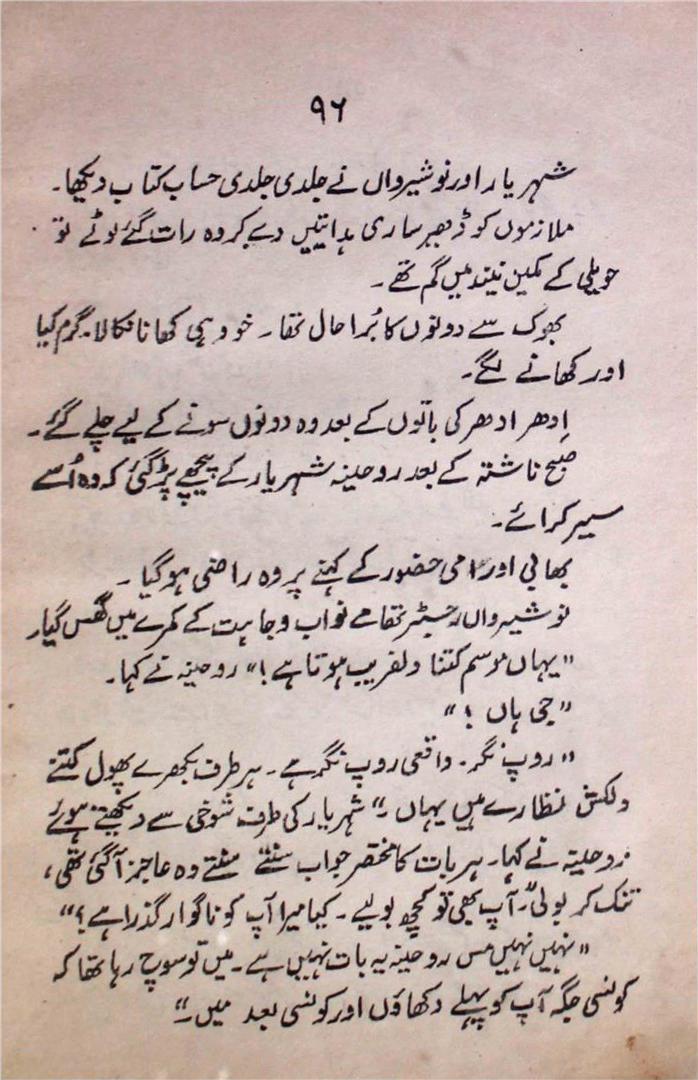 ۹۶
شہریار اور نوشیرواں نے جلدی جلدی حساب کتاب دیکھا۔
ملازموں کو ڈھیر ساری ہدایتیں دے کر وہ رات گئے لوٹے تو
حویلی کے مکین نیند میں گم تھے۔
بھوک سے دونوں کا بُرا حال تھا۔ خود ہی کھانا نکالا۔ گرم کیا
اور کھانے لگے۔
اِدھر ادھر کی باتوں کے بعد وہ دونوں سونے کے لیے چلے گئے۔
صبح ناشتہ کے بعد روحینہ شہریار کے پیچھے پڑ گئی کہ وہ اُسے
سیر کرائے۔
بھابی اور امی حضور کے کہنے پر وہ راضی ہو گیا۔
نوشیرواں رجسٹر تھامے نواب وجاہت کے کمرے میں گھس گیا۔
"یہاں موسم کتنا دلفریب ہوتا ہے!" روحینہ نے کہا۔
"جی ہاں!"
"روپ نگر۔ واقعی روپ نگر ہے۔ ہر طرف بکھرے پھول کتنے
دلکش نظارے ہیں یہاں۔" شہریار کی طرف شوخی سے دیکھتے ہوئے
روحینہ نے کہا۔ ہر بات کا مختصر جواب سنتے سنتے وہ عاجز آ گئی تھی،
تنک کر بولی "آپ بھی تو کچھ بولیے۔ کیا میرا آپ کو ناگوار گذرا ہے؟"
"نہیں نہیں مس روحینہ یہ بات نہیں ہے۔ میں تو سوچ رہا تھا کہ
کونسی جگہ آپ کو پہلے دکھاؤں اور کونسی بعد میں۔"